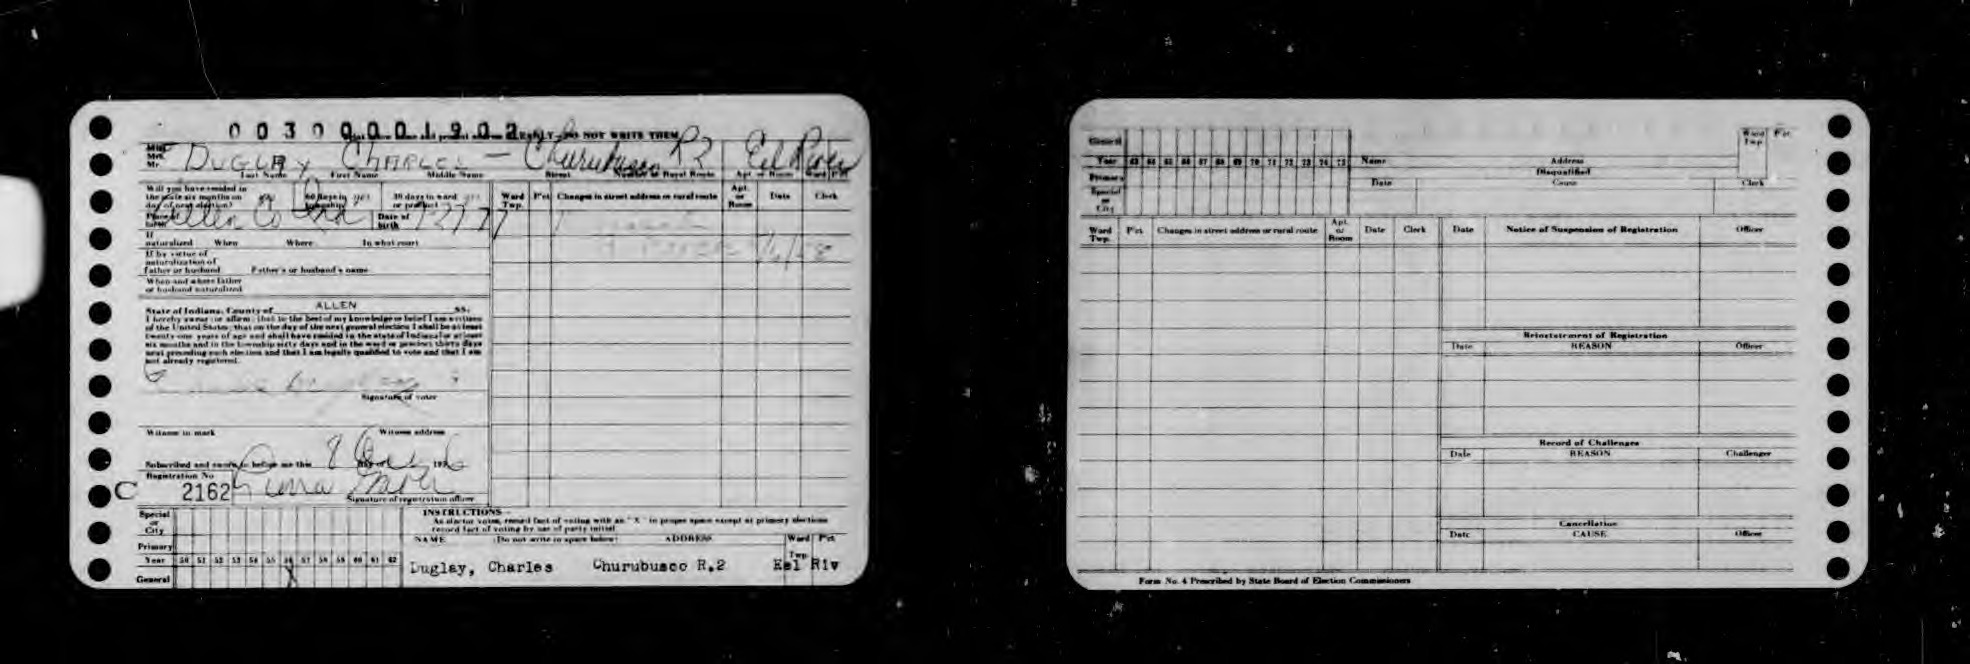 0 0 3 0 0 0 0 1 9 0 2
DO NOT WRITE THEM
Miss
Mrs.
Mr.
DUGLAY CHARLES — Churubusco R2 Eel River
Last Name First Name Middle Name Street Number or Rural Route Apt. or Room Ward Pct.
Will you have resided in
the state six months on
day of next election? yes 60 days in township? yes 30 days in ward or precinct yes
Place of birth Allen Co Ind Date of birth
If
naturalized When Where In what court
If by virtue of
naturalization of
father or husband Father's or husband's name
When and where father
or husband naturalized
State of Indiana, County of ALLEN SS.
I hereby swear or affirm that to the best of my knowledge or belief I am a citizen
of the United States; that on the day of the next general election I shall be at least
twenty-one years of age and shall have resided in the state of Indiana for at least
six months and in the township sixty days and in the ward or precinct thirty days
next preceding such election and that I am legally qualified to vote and that I am
not already registered.
Signature of voter
Witness to mark Witness address
Subscribed and sworn to before me this 8 day of
Registration No.
C 2162
Signature of registration officer
Ward Twp. Pct. Changes in street address or rural route Apt. or Room Date Clerk
Special
or
City
Primary
Year 50 51 52 53 54 55 56 57 58 59 60 61 62
General X
INSTRUCTIONS—
As elector votes, record fact of voting with an "X" in proper space except at primary elections
record fact of voting by use of party initial
NAME (Do not write in space below) ADDRESS Ward Twp. Pct.
Duglay, Charles Churubusco R.2 Eel Riv
General
Year 63 64 65 66 67 68 69 70 71 72 73 74 75
Primary
Special
or
City
Name Address Ward Twp. Pct.
Disqualified
Date Cause Clerk
Ward Twp. Pct. Changes in street address or rural route Apt. or Room Date Clerk
Date Notice of Suspension of Registration Officer
Reinstatement of Registration
Date REASON Officer
Record of Challenges
Date REASON Challenger
Cancellation
Date CAUSE Officer
Form No. 4 Prescribed by State Board of Election Commissioners